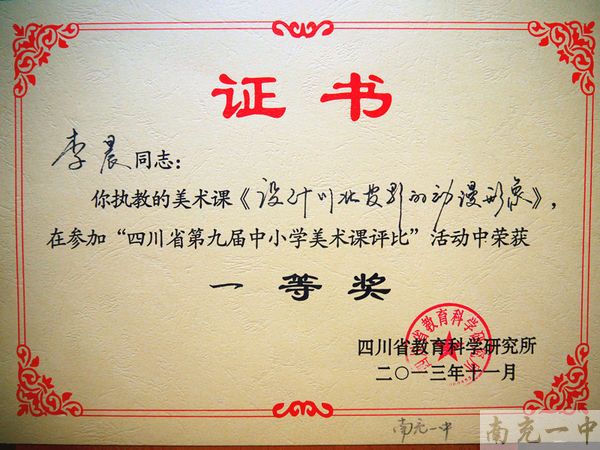 证书
李晨同志：
你执教的美术课《设计川北皮影的动漫形象》，
在参加“四川省第九届中小学美术课评比”活动中荣获
一等奖
四川省教育科学研究所
二〇一三年十一月
南充一中
南充一中